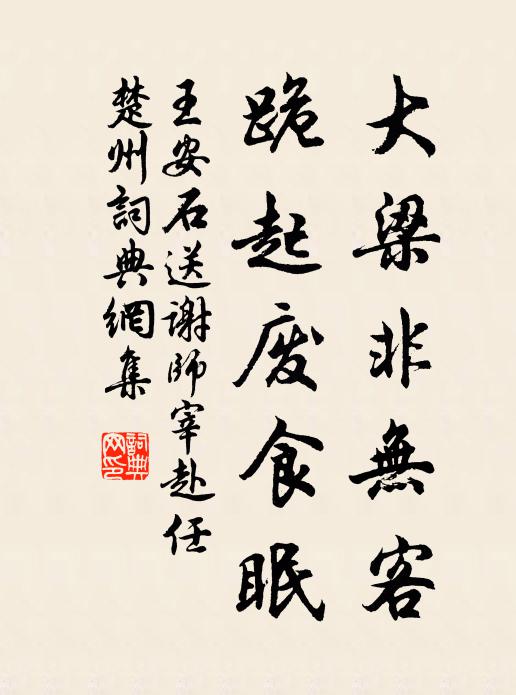 大梁非無客
跪起废食眠
王安石送謝師宰赴任
楚州詞典網集
詞典网印